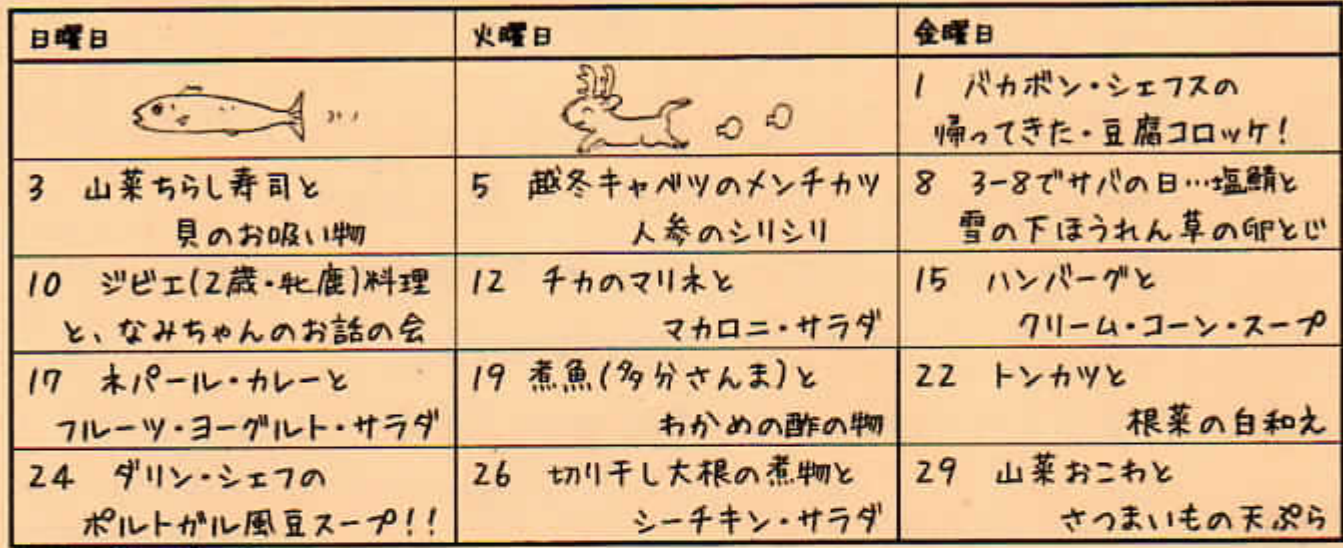 日曜日
火曜日
金曜日
1 バカボン・シェフスの
帰ってきた・豆腐コロッケ!
3 山菜ちらし寿司と
貝のお吸い物
5 越冬キャベツのメンチカツ
人参のシリシリ
8 3-8でサバの日…塩鯖と
雪の下ほうれん草の卵とじ
10 ジビエ(2歳・牝鹿)料理
と、なみちゃんのお話の会
12 チカのマリネと
マカロニ・サラダ
15 ハンバーグと
クリーム・コーン・スープ
17 ネパール・カレーと
フルーツ・ヨーグルト・サラダ
19 煮魚(多分さんま)と
わかめの酢の物
22 トンカツと
根菜の白和え
24 ダリン・シェフの
ポルトガル風豆スープ!!
26 切り干し大根の煮物と
シーチキン・サラダ
29 山菜おこわと
さつまいもの天ぷら